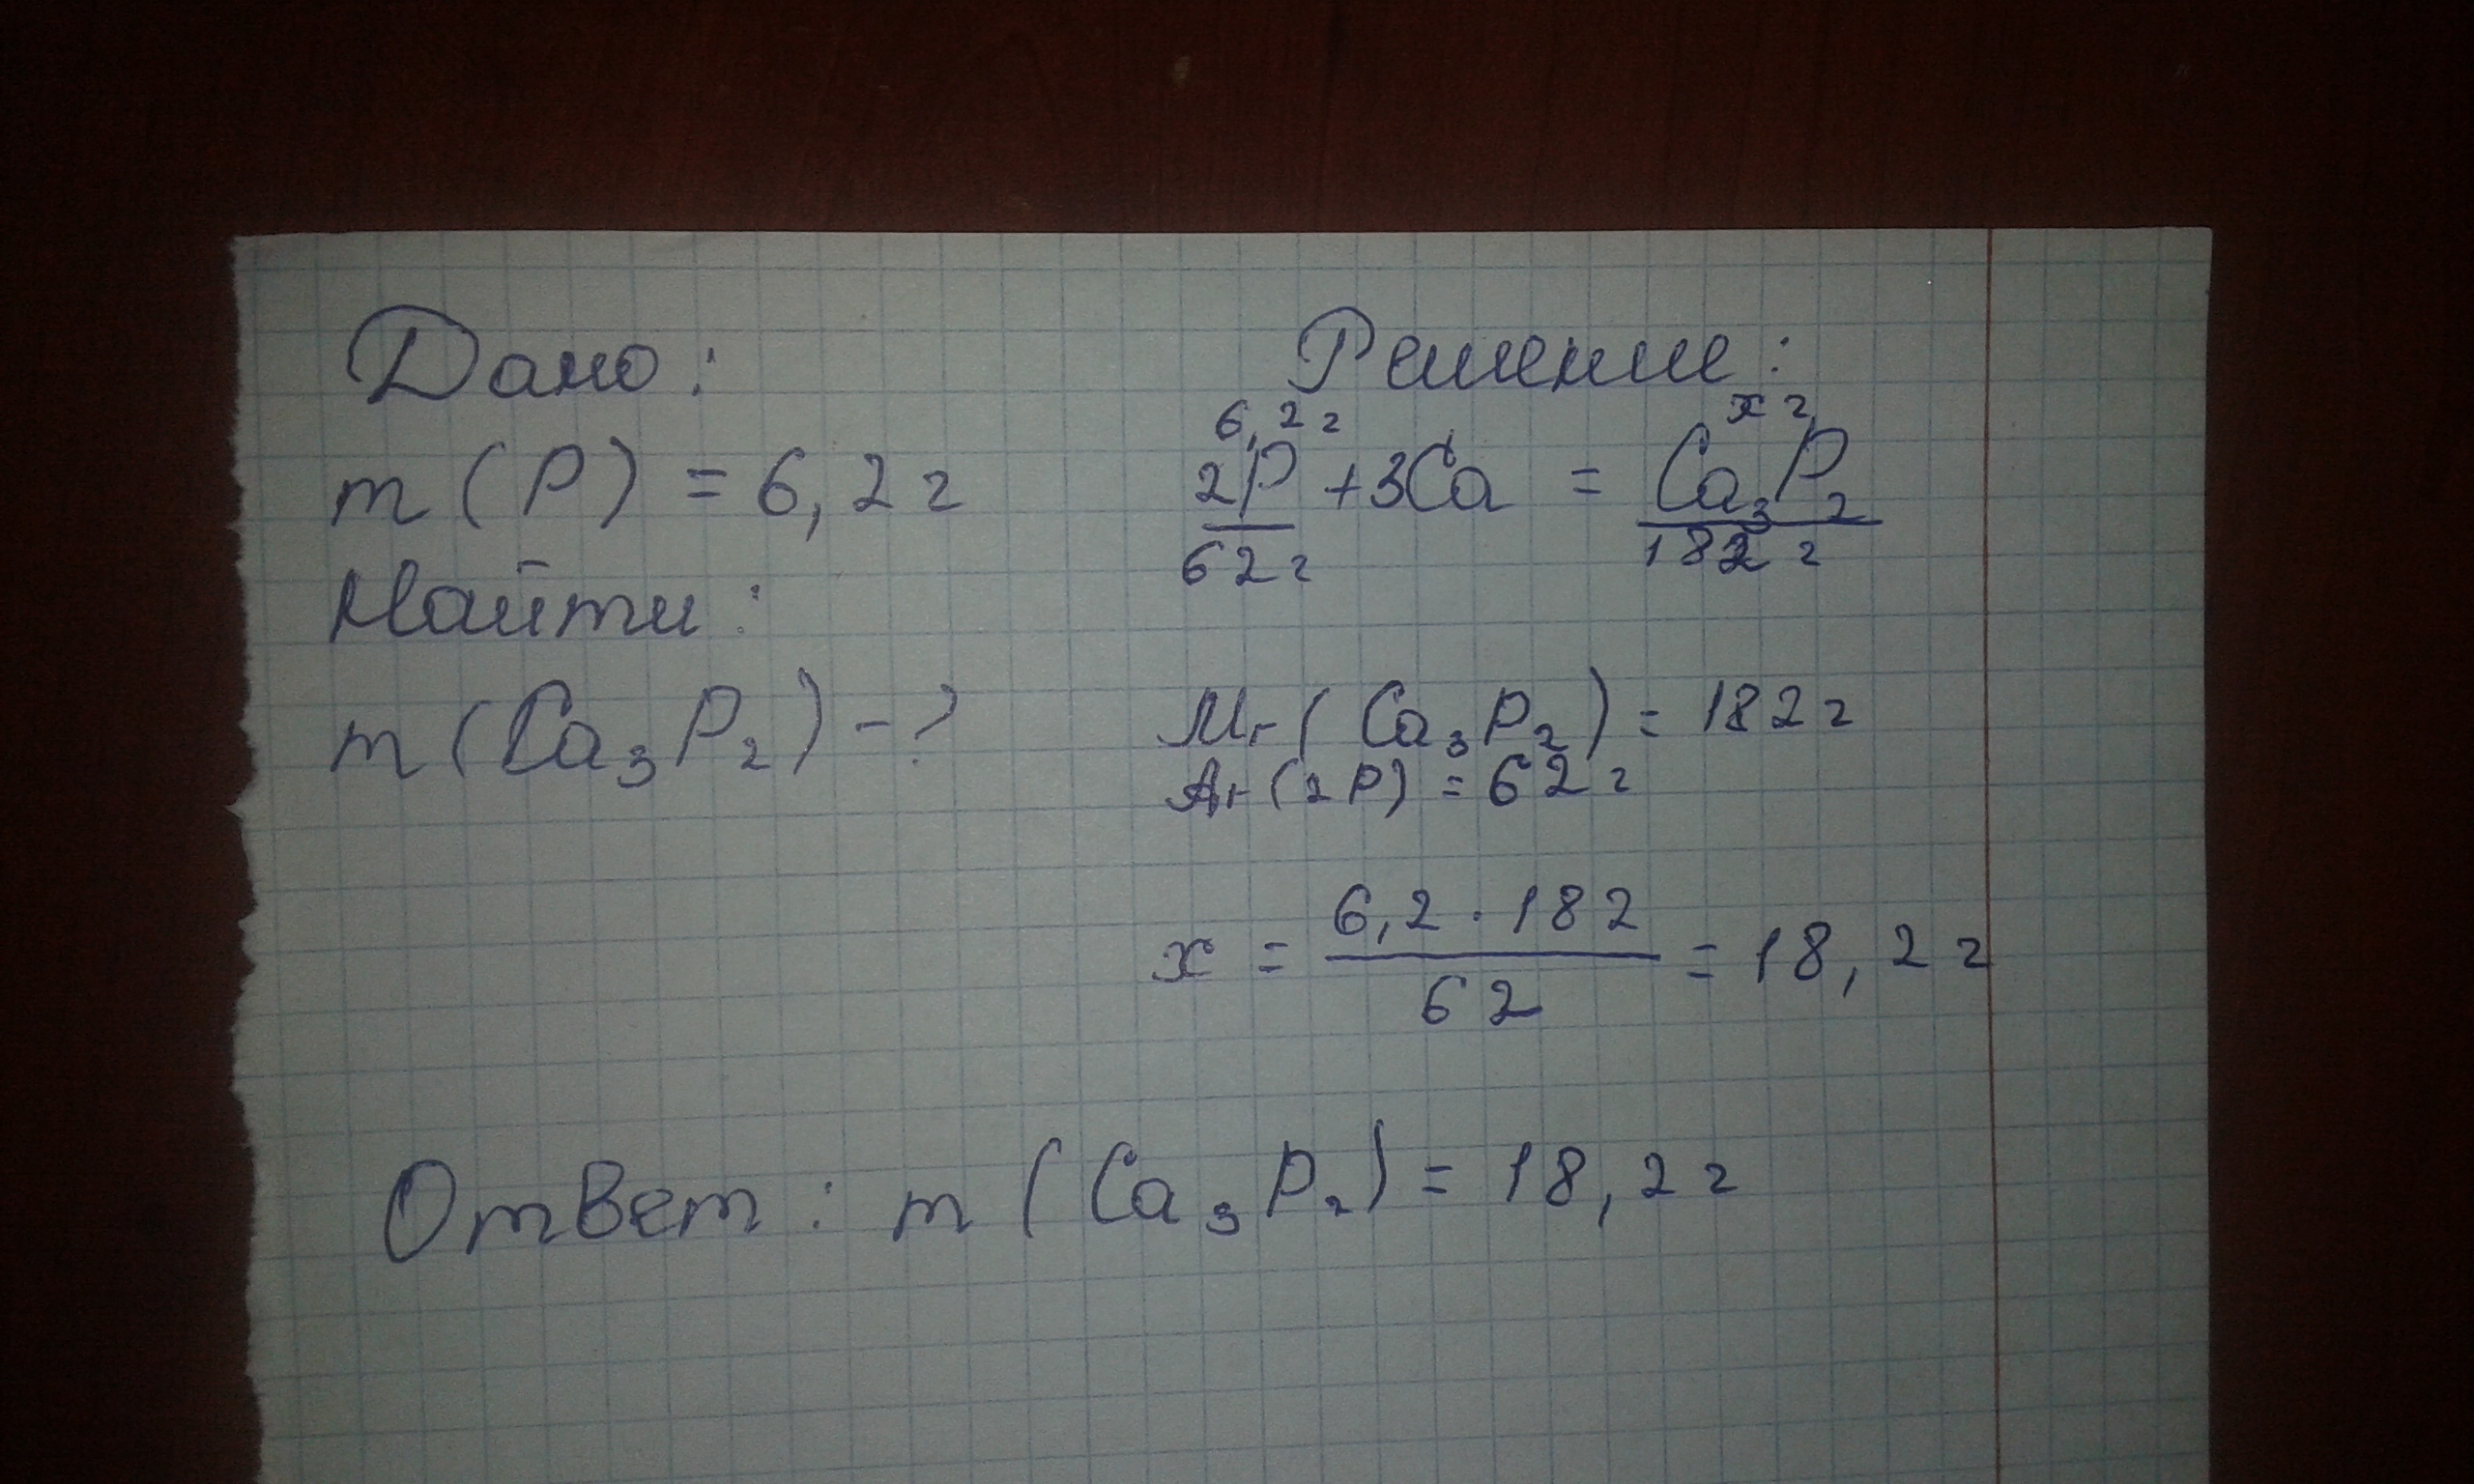 Дано:
m(P) = 6,2г
Найти:
m(Ca₃P₂) - ?
Решение:
6,2г xг
2P + 3Ca = Ca₃P₂
62г 182г
Mr(Ca₃P₂) = 182г
Ar(2P) = 62г
x = 6,2 · 182 / 62 = 18,2г
Ответ: m(Ca₃P₂) = 18,2г